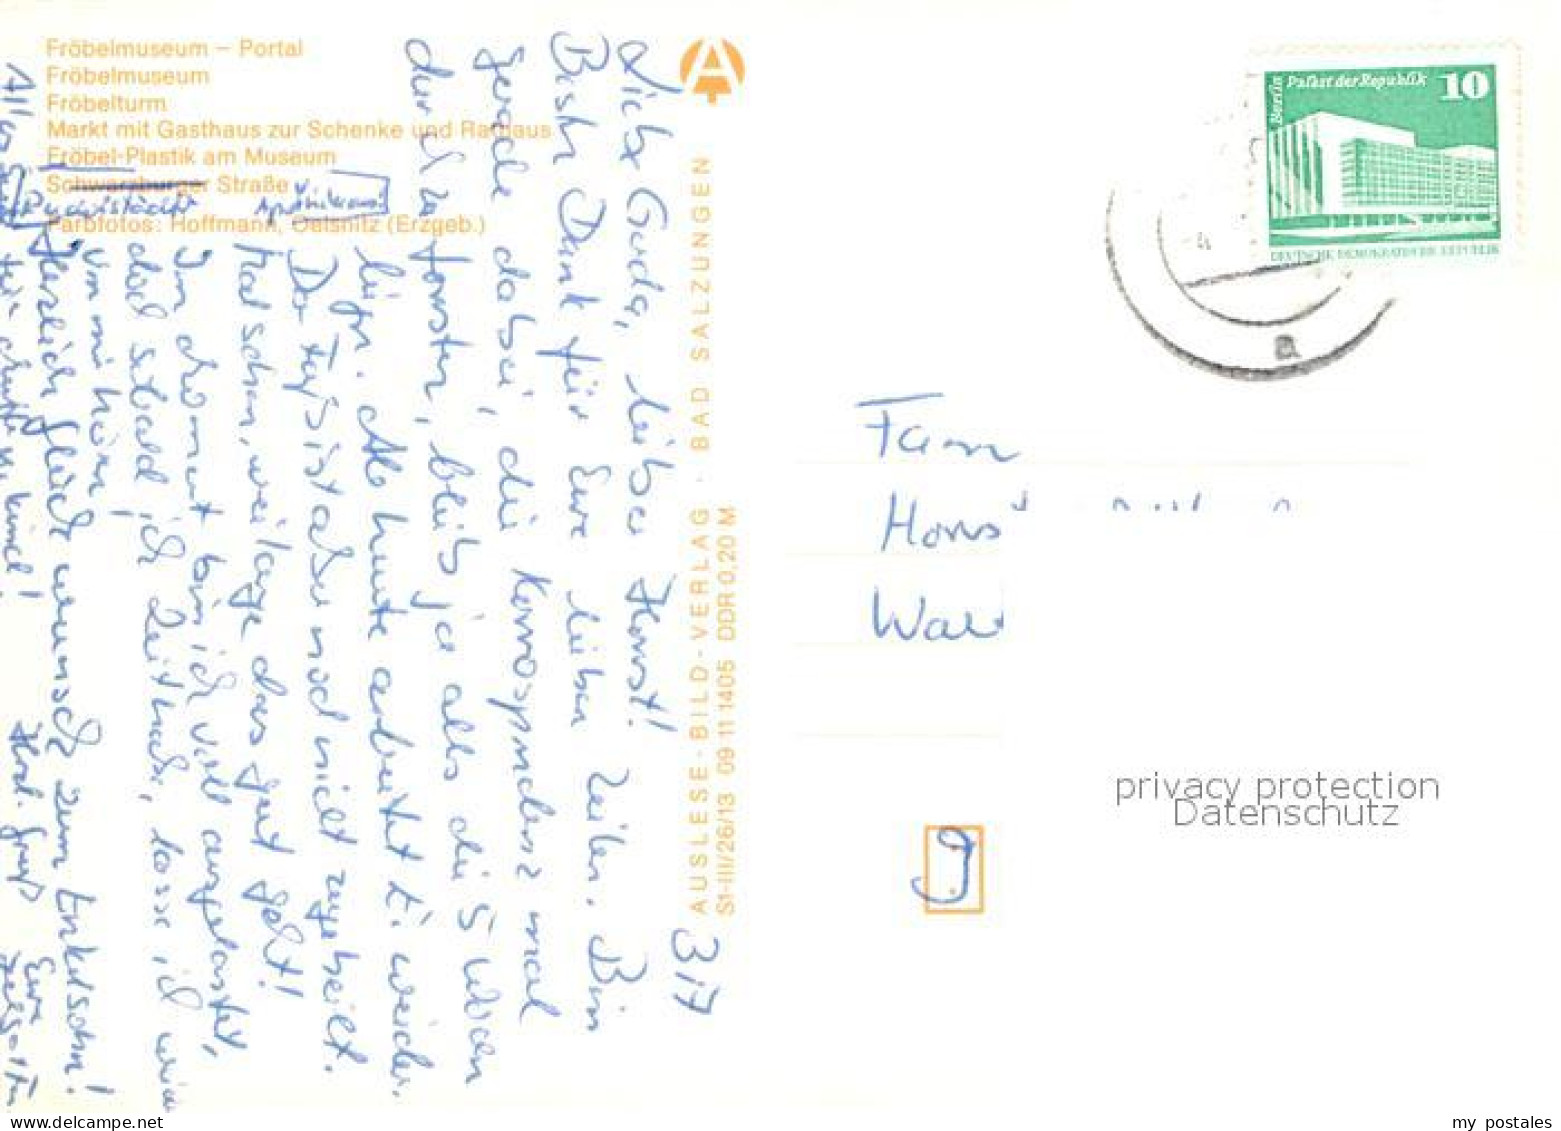 Fröbelmuseum – Portal
Fröbelmuseum
Fröbelturm
Markt mit Gasthaus zur Schenke und Rathaus
Fröbel-Plastik am Museum
Schwarzburger Straße
Farbfotos: Hoffmann, Oelsnitz (Erzgeb.)
AUSLESE-BILD-VERLAG · BAD SALZUNGEN
S1-III/26/13 09 11 1405 DDR 0,20 M
317
Liebe Guda, lieber Horst!
Besten Dank für Eure lieben Zeilen. Bin
gerade dabei, die Korrespondenz mal
durchzuforsten, blieb ja alles die 5 Wochen
liegen. Ab heute arbeitet wieder.
Der Fuß ist aber noch nicht ausgeheilt.
Mal sehen, wie lange das gut geht!
Im Moment bin ich voll ausgelastet,
doch sobald ich Zeit habe, lasse ich wieder
von mir hören!
Herzlich Glückwunsch zum Enkelsohn!
Herzl. Grüße Eure
Berlin Palast der Republik 10
DEUTSCHE DEMOKRATISCHE REPUBLIK
a
Fam
Horst
privacy protection
Datenschutz
my postales